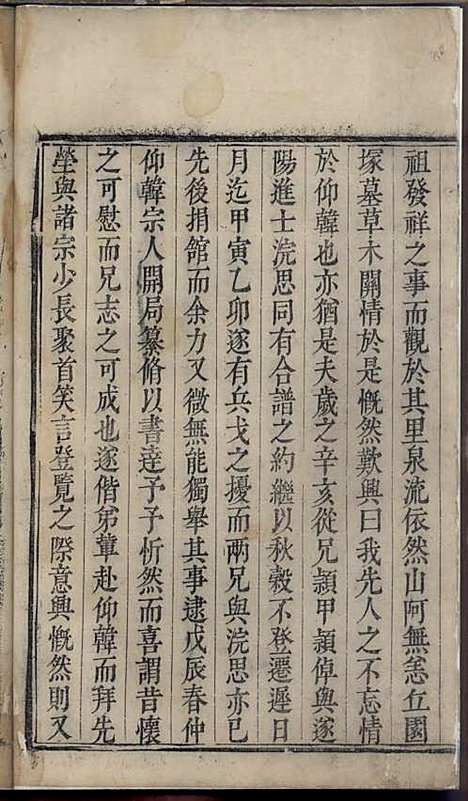 祖發祥之事而觀於其里泉流依然山阿無恙丘園
塚墓草木關情於是慨然歎興曰我先人之不忘情
於仰韓也亦猶是夫歲之辛亥從兄頴甲頴倬與遂
陽進士浣思同有合譜之約繼以秋穀不登遷遲日
月迄甲寅乙卯遂有兵戈之擾而兩兄與浣思亦已
先後捐館而余力又微無能獨舉其事逮戊辰春仲
仰韓宗人開局纂脩以書達予予忻然而喜謂昔懷
之可慰而兄志之可成也遂偕弟輩赴仰韓而拜先
塋與諸宗少長聚首笑言登覽之際意興慨然則又